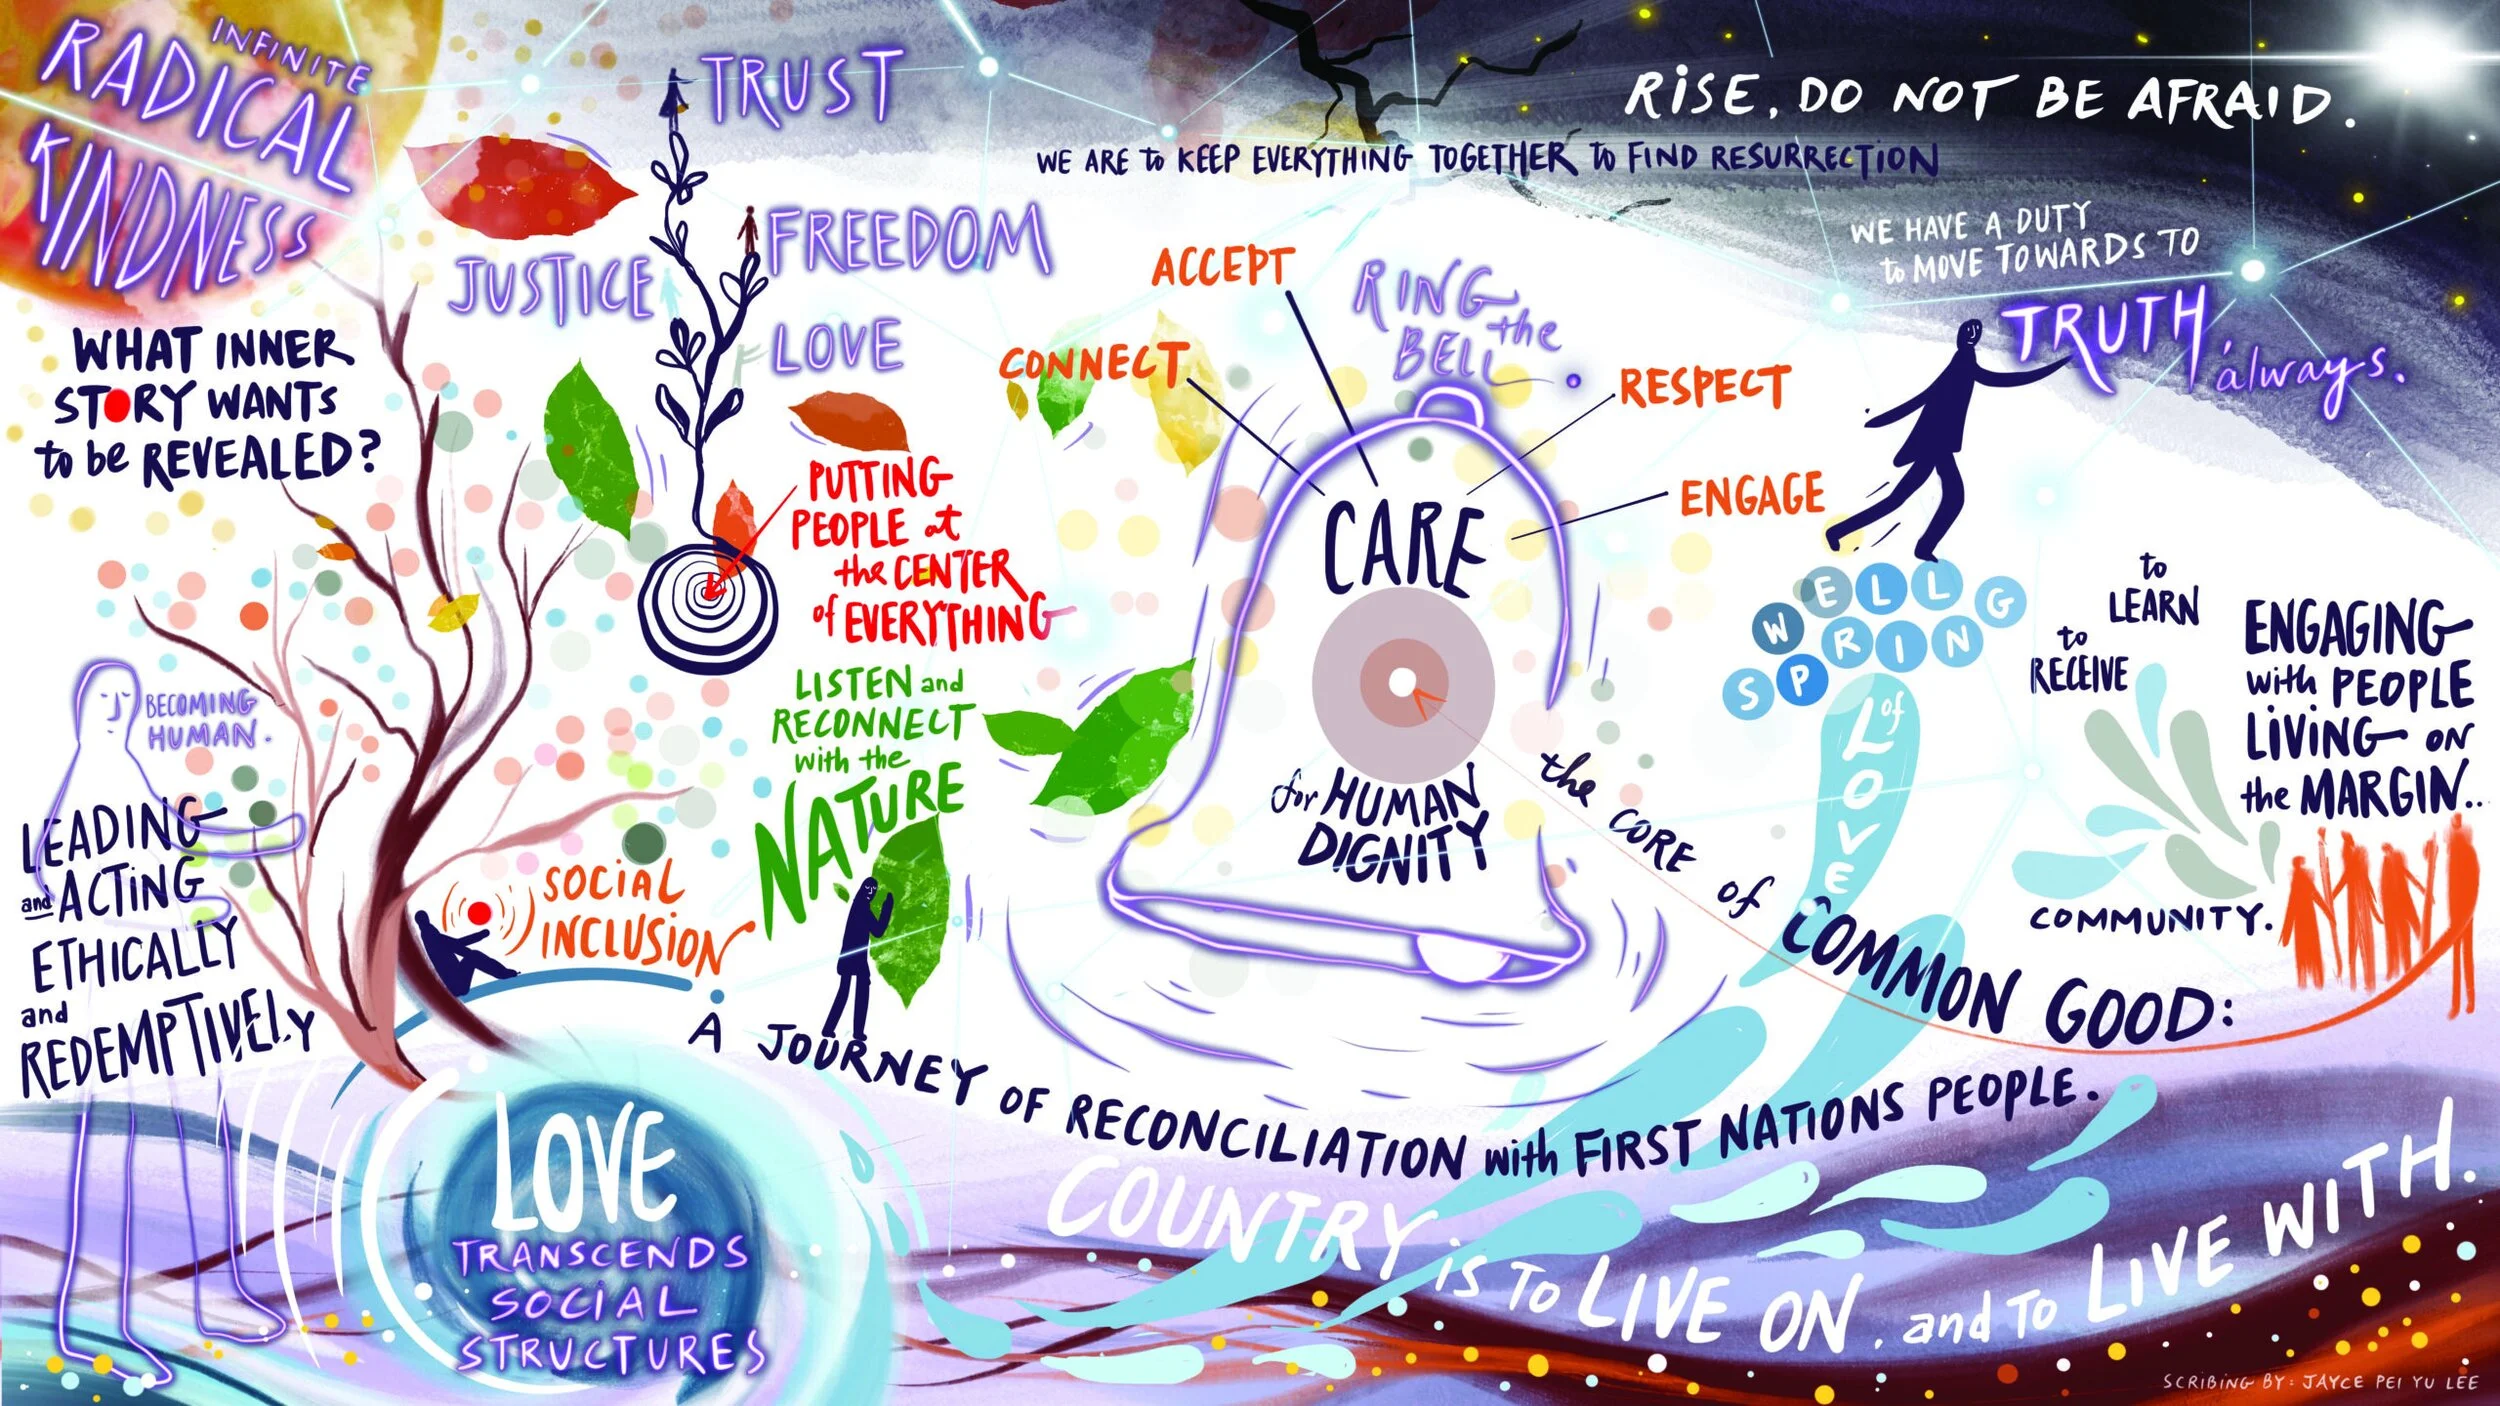 INFINITE
RADICAL
KINDNESS
TRUST
JUSTICE
FREEDOM
LOVE
RISE, DO NOT BE AFRAID.
WE ARE to KEEP EVERYTHING TOGETHER to FIND RESURRECTION
WE HAVE A DUTY
to MOVE TOWARDS TO
TRUTH,
always.
WHAT INNER
STORY WANTS
to be REVEALED?
PUTTING
PEOPLE at
the CENTER
of EVERYTHING
ACCEPT
CONNECT
RING
the
BELL.
RESPECT
ENGAGE
CARE
for HUMAN
DIGNITY
LISTEN and
RECONNECT
with the
NATURE
BECOMING
HUMAN.
LEADING
and ACTING
ETHICALLY
and
REDEMPTIVELY
SOCIAL
INCLUSION
WELL
SPRING
of
LOVE
to
LEARN
to
RECEIVE
COMMUNITY.
ENGAGING
with PEOPLE
LIVING on
the MARGIN..
the CORE of COMMON GOOD:
A JOURNEY OF RECONCILIATION with FIRST NATIONS PEOPLE.
COUNTRY is TO LIVE ON, and TO LIVE WITH.
LOVE
TRANSCENDS
SOCIAL
STRUCTURES
SCRIBING BY: JAYCE PEI YU LEE